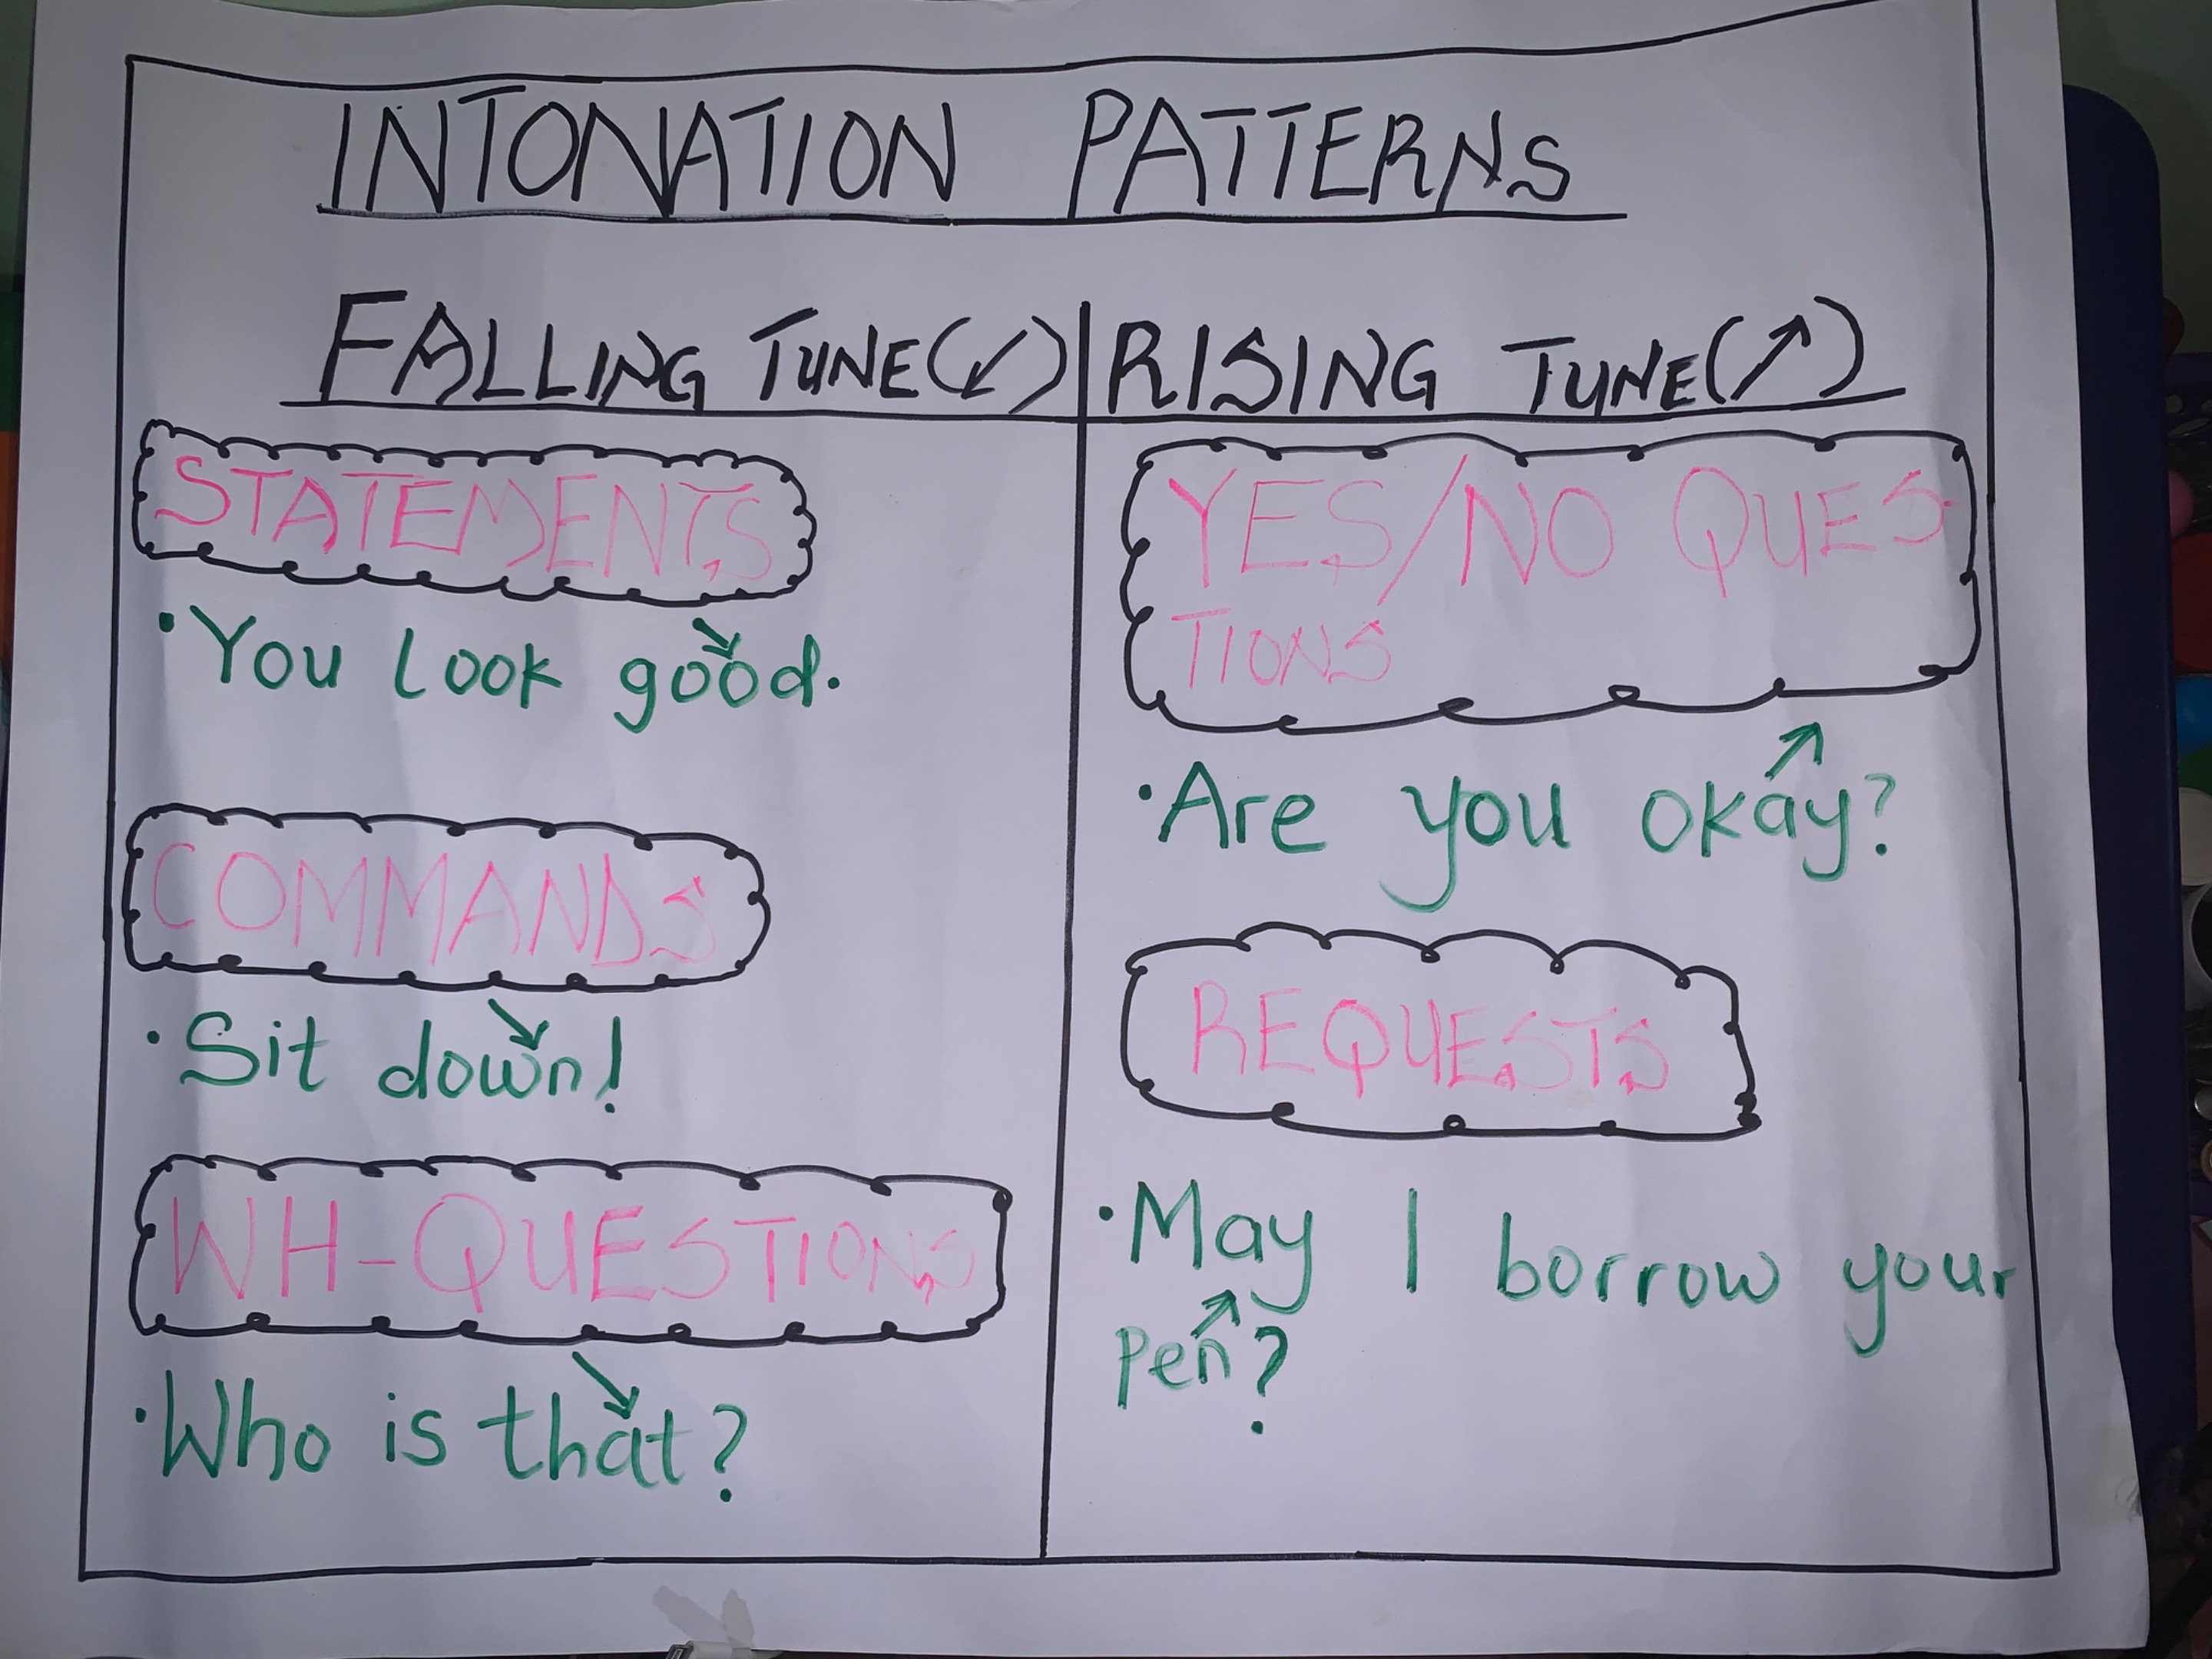 INTONATION PATTERNS
FALLING TUNE(↙)
STATEMENTS
·You look good.
COMMANDS
·Sit down!
WH-QUESTIONS
·Who is that?
RISING TUNE(↗)
YES/NO QUES-
TIONS
·Are you okay?
REQUESTS
·May I borrow your
pen?